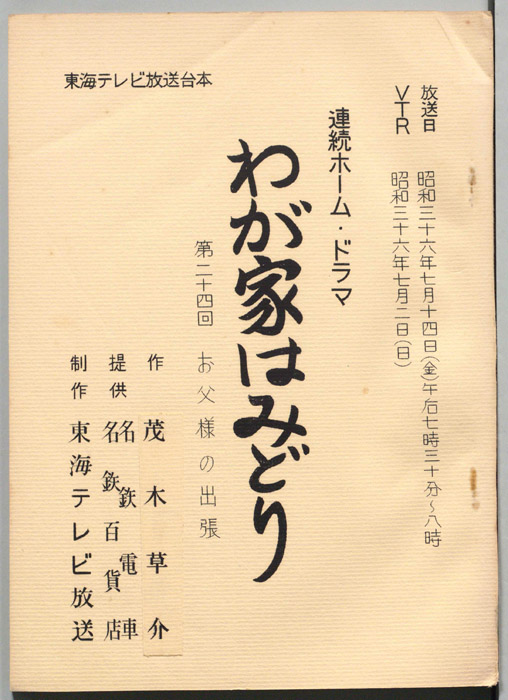 東海テレビ放送台本
放送日 昭和三十六年七月十四日(金)午后七時三十分~八時
VTR 昭和三十六年七月二日(日)
連続ホーム・ドラマ
わが家はみどり
第二十四回 お父様の出張
作 茂木草介
提供 名鉄電車
名鉄百貨店
制作 東海テレビ放送